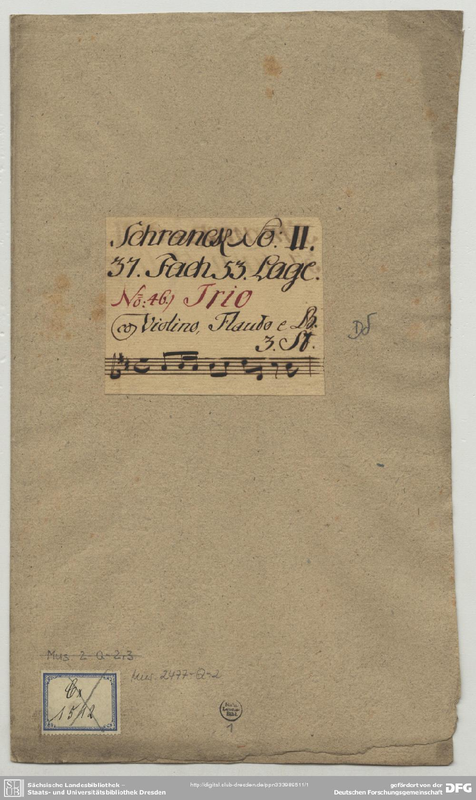 Schranck No: II.
37. Fach 53. Lage.
No: 46) Trio
co Violino, Flauto e B.
3. St.
Mus. 2-Q-2,3
Mus. 2477-Q-2
1512
1
Sächsische Landesbibliothek –
Staats- und Universitätsbibliothek Dresden
gefördert von der
Deutschen Forschungsgemeinschaft
DFG